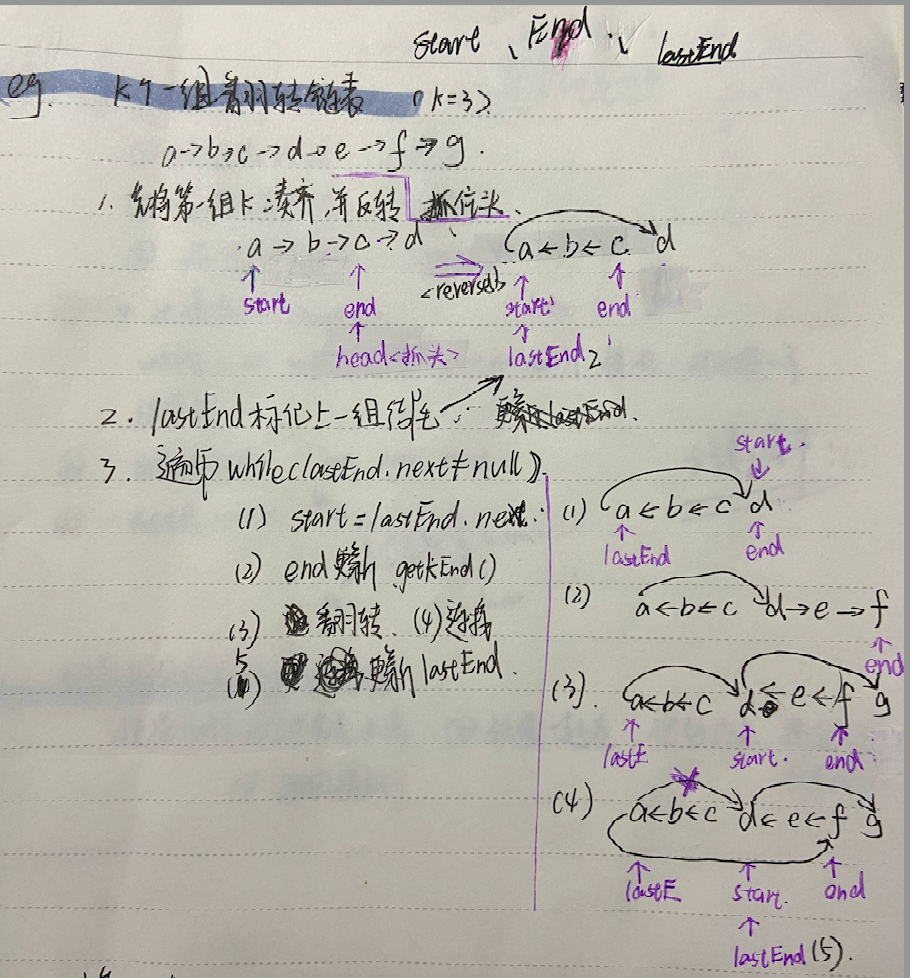 start 、End 、 lastEnd
eg. K个一组翻转链表 (k=3)
a→b→c→d→e→f→g.
1. 先将第一组k凑齐,并反转 抓住头、
a→b→c→d a←b←c d
<reverse()>
start end start end
head<抓头> lastEnd 2
2. lastEnd标记上一组结尾
3. 遍历while(lastEnd.next≠null).
(1) start=lastEnd.next.
(2) end更新 getkEnd()
(3) 翻转、(4)连接
5 更新lastEnd
start.
(1) a←b←c d
lastEnd end
(2) a←b←c d→e→f
end
(3). a←b←c d←e←f g
lastE start. end
(4) a←b←c d←e←f g
lastE start. end
lastEnd(5).